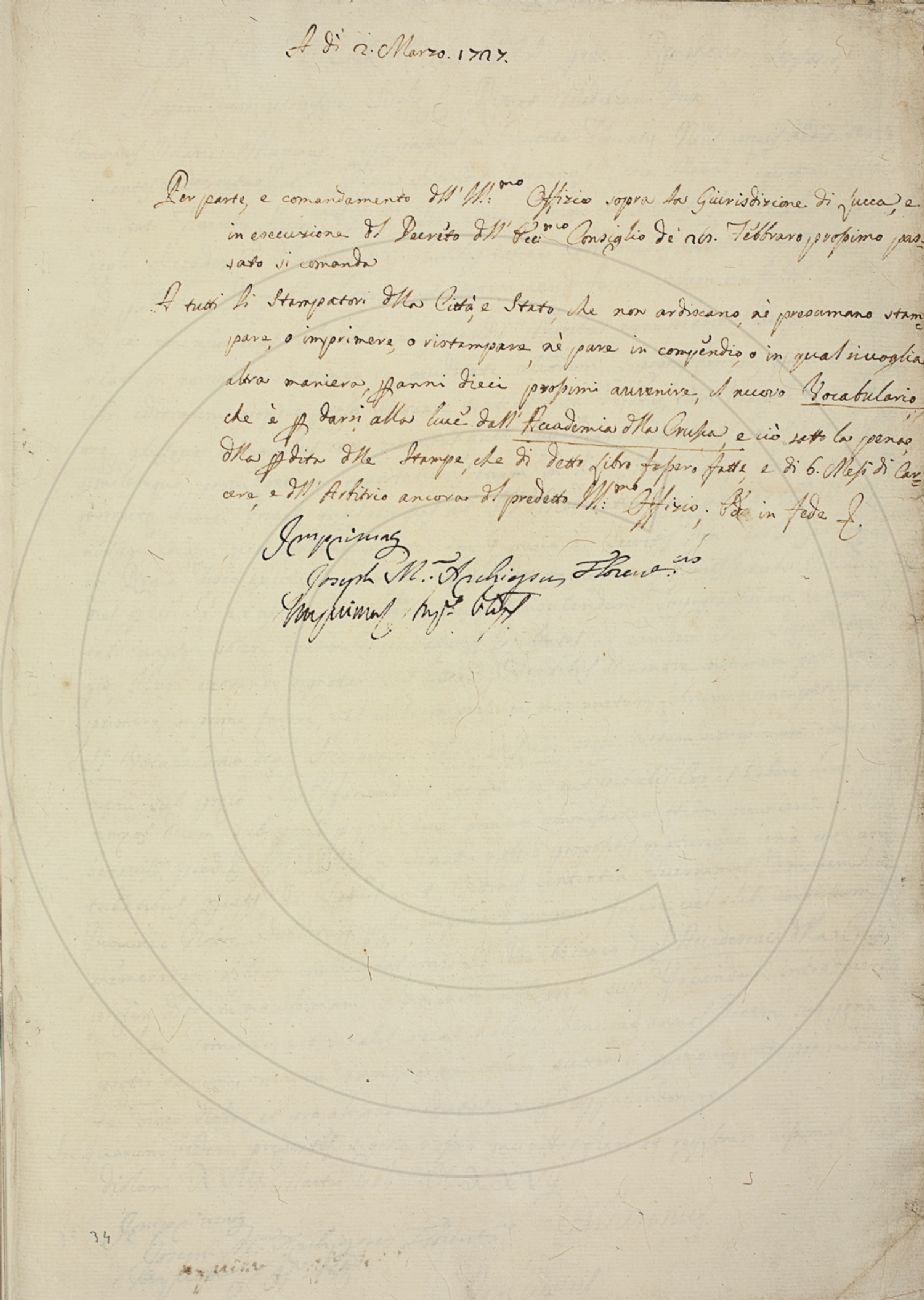 A dì 2. Marzo. 1727.
Per parte, e comandamento dll' Ill:mo Offizio sopra la Giurisdizione di Lucca, e
in esecuzione dl Decreto dll' Ecc:mo Consiglio de' 26. Febbraro prossimo pas=
sato si comanda
A tutti li Stampatori dlla Città, e Stato, che non ardiscano, nè presumano stam=
pare, o imprimere, o ristampare, nè pure in compendio, o in qual si voglia
altra maniera, p anni dieci prossimi avvenire, il nuovo Vocabulario,
che è p darsi alla luce dall' Accademia dlla Crusca, e ciò sotto la pena
dlla pdita dlle Stampe, che di detto Libro fossero fatte, e di 6. Mesi di Car=
cere, e dll' Arbitrio ancora dl predetto Ill:mo Offizio; in fede
Imprimat
Joseph M. Archiepus Floren.
34